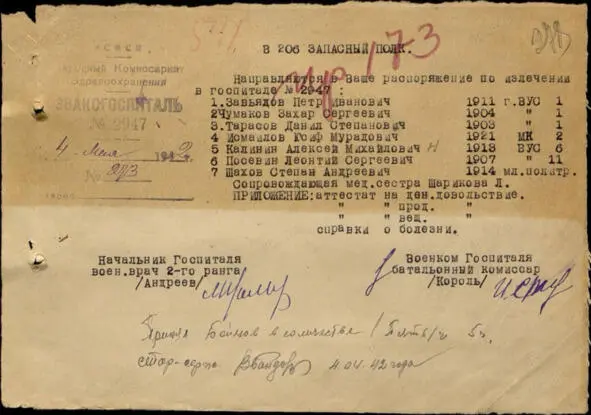 В 206 ЗАПАСНЫЙ ПОЛК.
293
С.С.С.Р.
Народный Комиссариат
Здравоохранения
ЭВАКОГОСПИТАЛЬ
№ 2947
4 Мая 1942
№ 293
Направляются в Ваше распоряжение по излечении
в госпитале № 2947 :
1. Завьядов Петр Иванович 1911 г. ВУС 1
2 Чумаков Захар Сергеевич 1904 " 1
3. Тарасов Данил Степанович 1903 " 1
4 Исмаилов Юсиф Мурадович 1921 МК 2
5 Калинин Алексей Михайлович Н 1913 ВУС 6
6 Посевин Леонтий Сергеевич 1907 " 11
7 Шахов Степан Андреевич 1914 мл.политр.
Сопровождающая мед.сестра Шарикова Л.
ПРИЛОЖЕНИЕ: аттестат на ден.довольствие.
" " прод. "
" " вещ. "
справки о болезни.
Начальник Госпиталя
воен.врач 2-го ранга
/Андреев/
Военком Госпиталя
батальонный комиссар
/Король/
Принял Бойцов в количестве
4.04.42 года